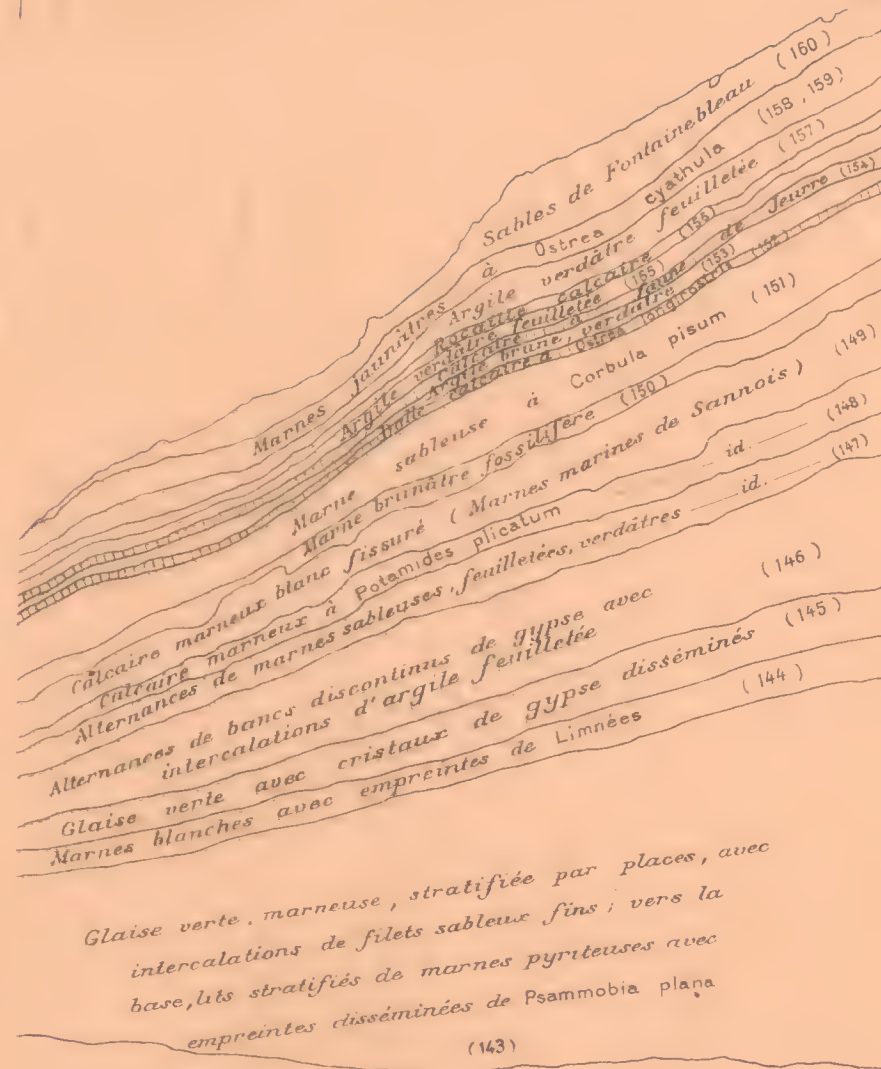 Sables de Fontainebleau (160)
Marnes jaunâtres à Ostrea cyathula (158, 159)
Argile verdâtre feuilletée (157)
Rocaille calcaire (156)
Argile verdâtre feuilletée (155)
Calcaire à faune de Jeurre (154)
Argile brune, verdâtre (153)
Dalle calcaire à Ostrea longirostris (152)
Marne sableuse à Corbula pisum (151)
Marne brunâtre fossilifère (150)
Calcaire marneux blanc fissuré (Marnes marines de Sannois) (149)
Calcaire marneux à Potamides plicatum — id. — (148)
Alternances de marnes sableuses, feuilletées, verdâtres — id. — (147)
Alternances de bancs discontinus de gypse avec
intercalations d'argile feuilletée (146)
Glaise verte avec cristaux de gypse disséminés (145)
Marnes blanches avec empreintes de Limnées (144)
Glaise verte, marneuse, stratifiée par places, avec
intercalations de filets sableux fins; vers la
base, lits stratifiés de marnes pyriteuses avec
empreintes disséminées de Psammobia plana
(143)